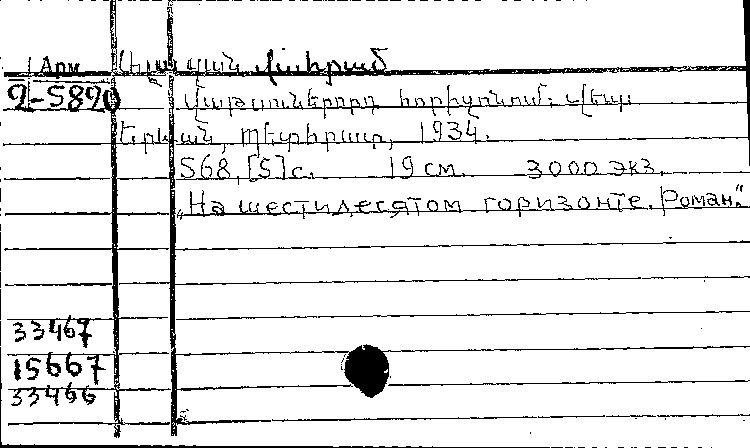 Арм Ալազան Վահրամ
Վաթսուներորդ հորիզոնում. վեպ
Երևան, Պետհրատ, 1934.
568, [5] с. 19 см. 3000 экз.
„На шестидесятом горизонте. Роман."
33467
15667
33466